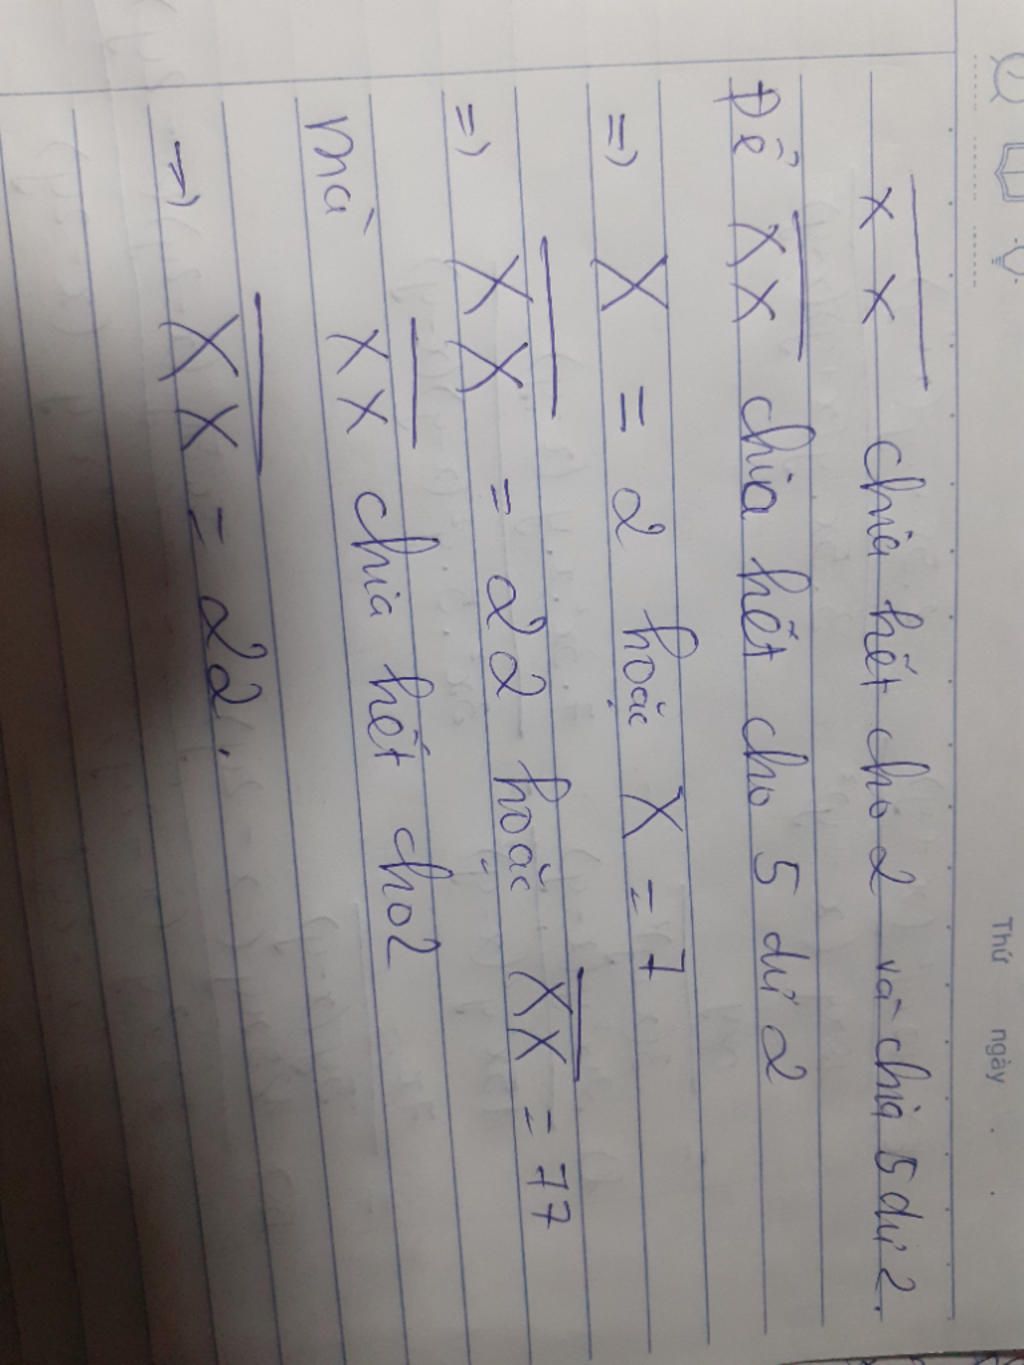 Thứ ngày
xx chia hết cho 2 và chia 5 dư 2.
Để xx chia hết cho 5 dư 2
=> X = 2 hoặc X = 7
=> XX = 22 hoặc XX = 77
mà xx chia hết cho 2
=> XX = 22.